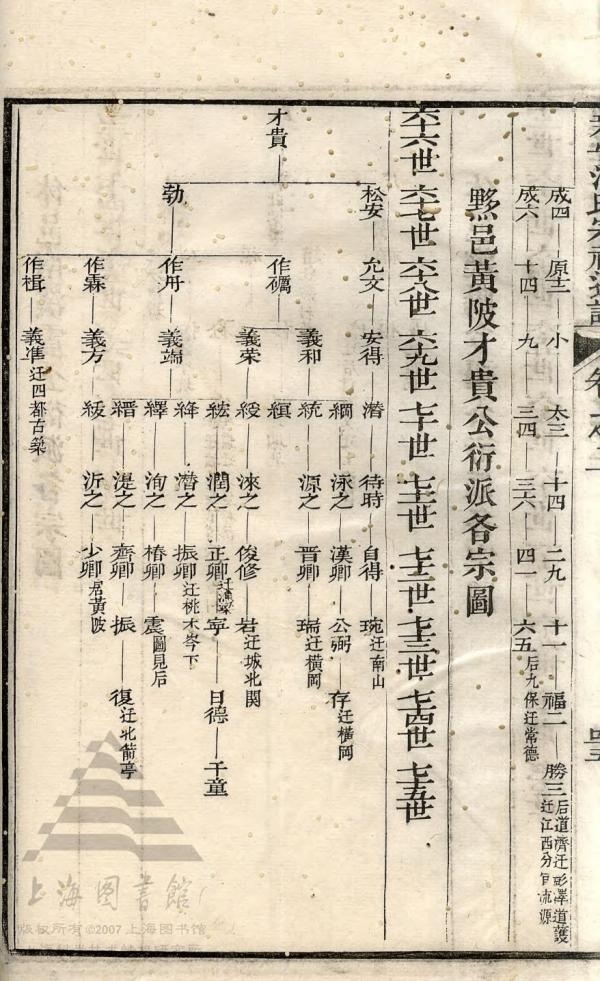 成四 原十二 小 太三 十四 二九 十一 福二 勝三 后道濟迁彭澤道護迁江西分宜流源
成六 十四 九 三四 三六 四一 六五 后九保迁常德
黟邑黄陂才貴公衍派各宗圖
六十六世 六十七世 六十八世 六十九世 七十世 七十一世 七十二世 七十三世 七十四世 七十五世
才貴
松安 允文 安得 潛 待時 自得 琬 迁南山
綱 泳之 漢卿 公弼 存 迁橫岡
義和 統 源之 晋卿 瑞 迁橫岡
作礪 縝
義荣 綬 淶之 俊修 岩 迁城北関
紘 潤之 正卿 寧 日德 千童
勃 作舟 義端 絳 濳之 振卿 迁桃木岺下
繹 洵之 椿卿 震 圖見后
縉 湜之 齊卿 振 復 迁北箭亭
作霖 義方 紱 沂之 少卿 居黄陂
作楫 義準 迁四都古築
上海图書館
版权所有©2007上海图书馆